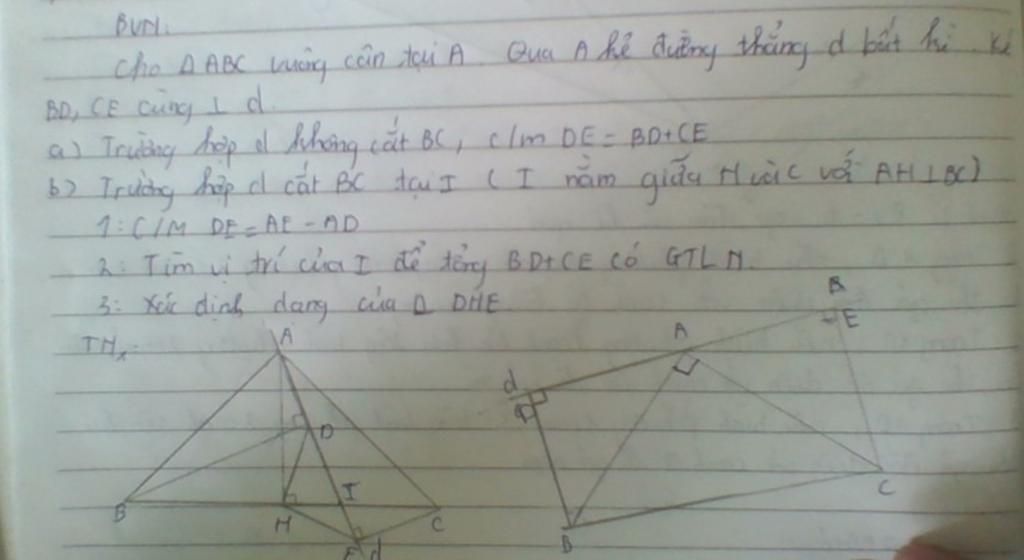 BVN:
Cho Δ ABC vuông cân tại A. Qua A kẻ đường thẳng d bất kì. Kẻ
BD, CE cùng ⊥ d.
a) Trường hợp d không cắt BC, c/m DE = BD + CE
b) Trường hợp d cắt BC tại I (I nằm giữa H và C với AH ⊥ BC)
1: C/M DE = AE - AD
2: Tìm vị trí của I để tổng BD + CE có GTLN.
3: Xác định dạng của Δ DHE.
A
B
D
H
I
C
E
d
d
A
E
B
C